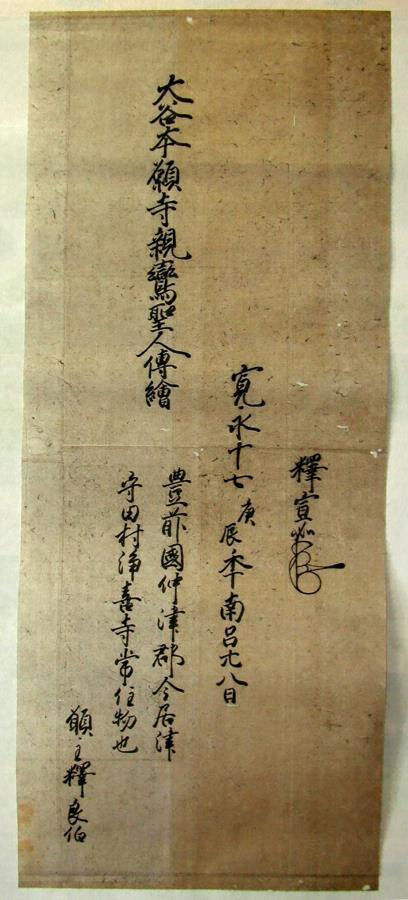 釋宣如
寛永十七庚辰秊南呂廿八日
大谷本願寺親鸞聖人傳繪
豊前國仲津郡今居津
守田村浄喜寺常住物也
願主釋良伯